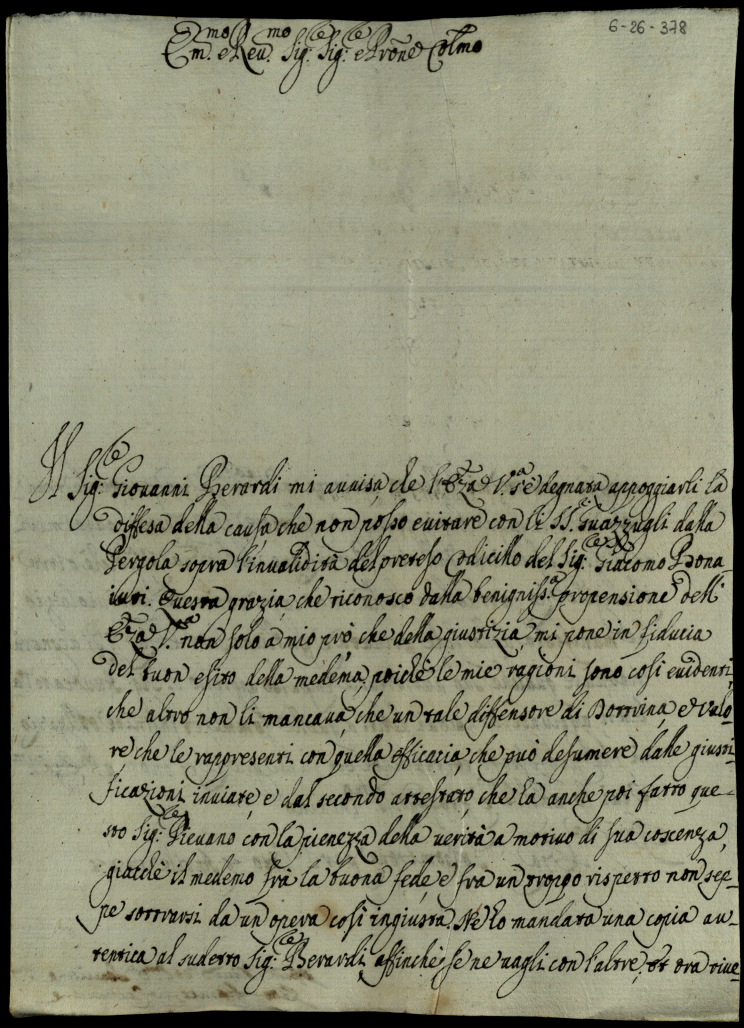 6-26-378
Em.mo e Rev.mo Sig.re Sig.re e Prõne Colmo
Il Sig.re Giovanni Berardi mi avvisa che l'Eza V.ra s'è degnata appoggiarli la
diffesa della causa che non posso evitare con li SS.ri Guazzugli dalla
Pergola sopra l'invalidità del preteso Codicillo del Sig.re Giacomo Bona-
iuti. Questa grazia, che riconosco dalla benigniss.a propensione dell'
Eza V.ra non solo à mio prò che della giustizia, mi pone in fiducia
del buon esito della medema, poiche le mie ragioni sono cosi evidenti,
che altro non li mancava, che un tale diffensore di Dottrina, e valo-
re che le rappresenti con quella efficacia, che può desumere dalle giusti-
ficazioni inviate, e dal secondo attestato, che hà anche poi fatto que-
sto Sig.re Pievano con la pienezza della verità a motivo di sua coscenza,
giacchè il medemo frà la buona fede, e frà un troppo rispetto non sep-
pe sottrarsi da un opera cosi ingiusta. Ne hò mandata una copia au-
tentica al sudetto Sig.re Berardi, affinchè se ne vagli con l'altre, et ora rive-